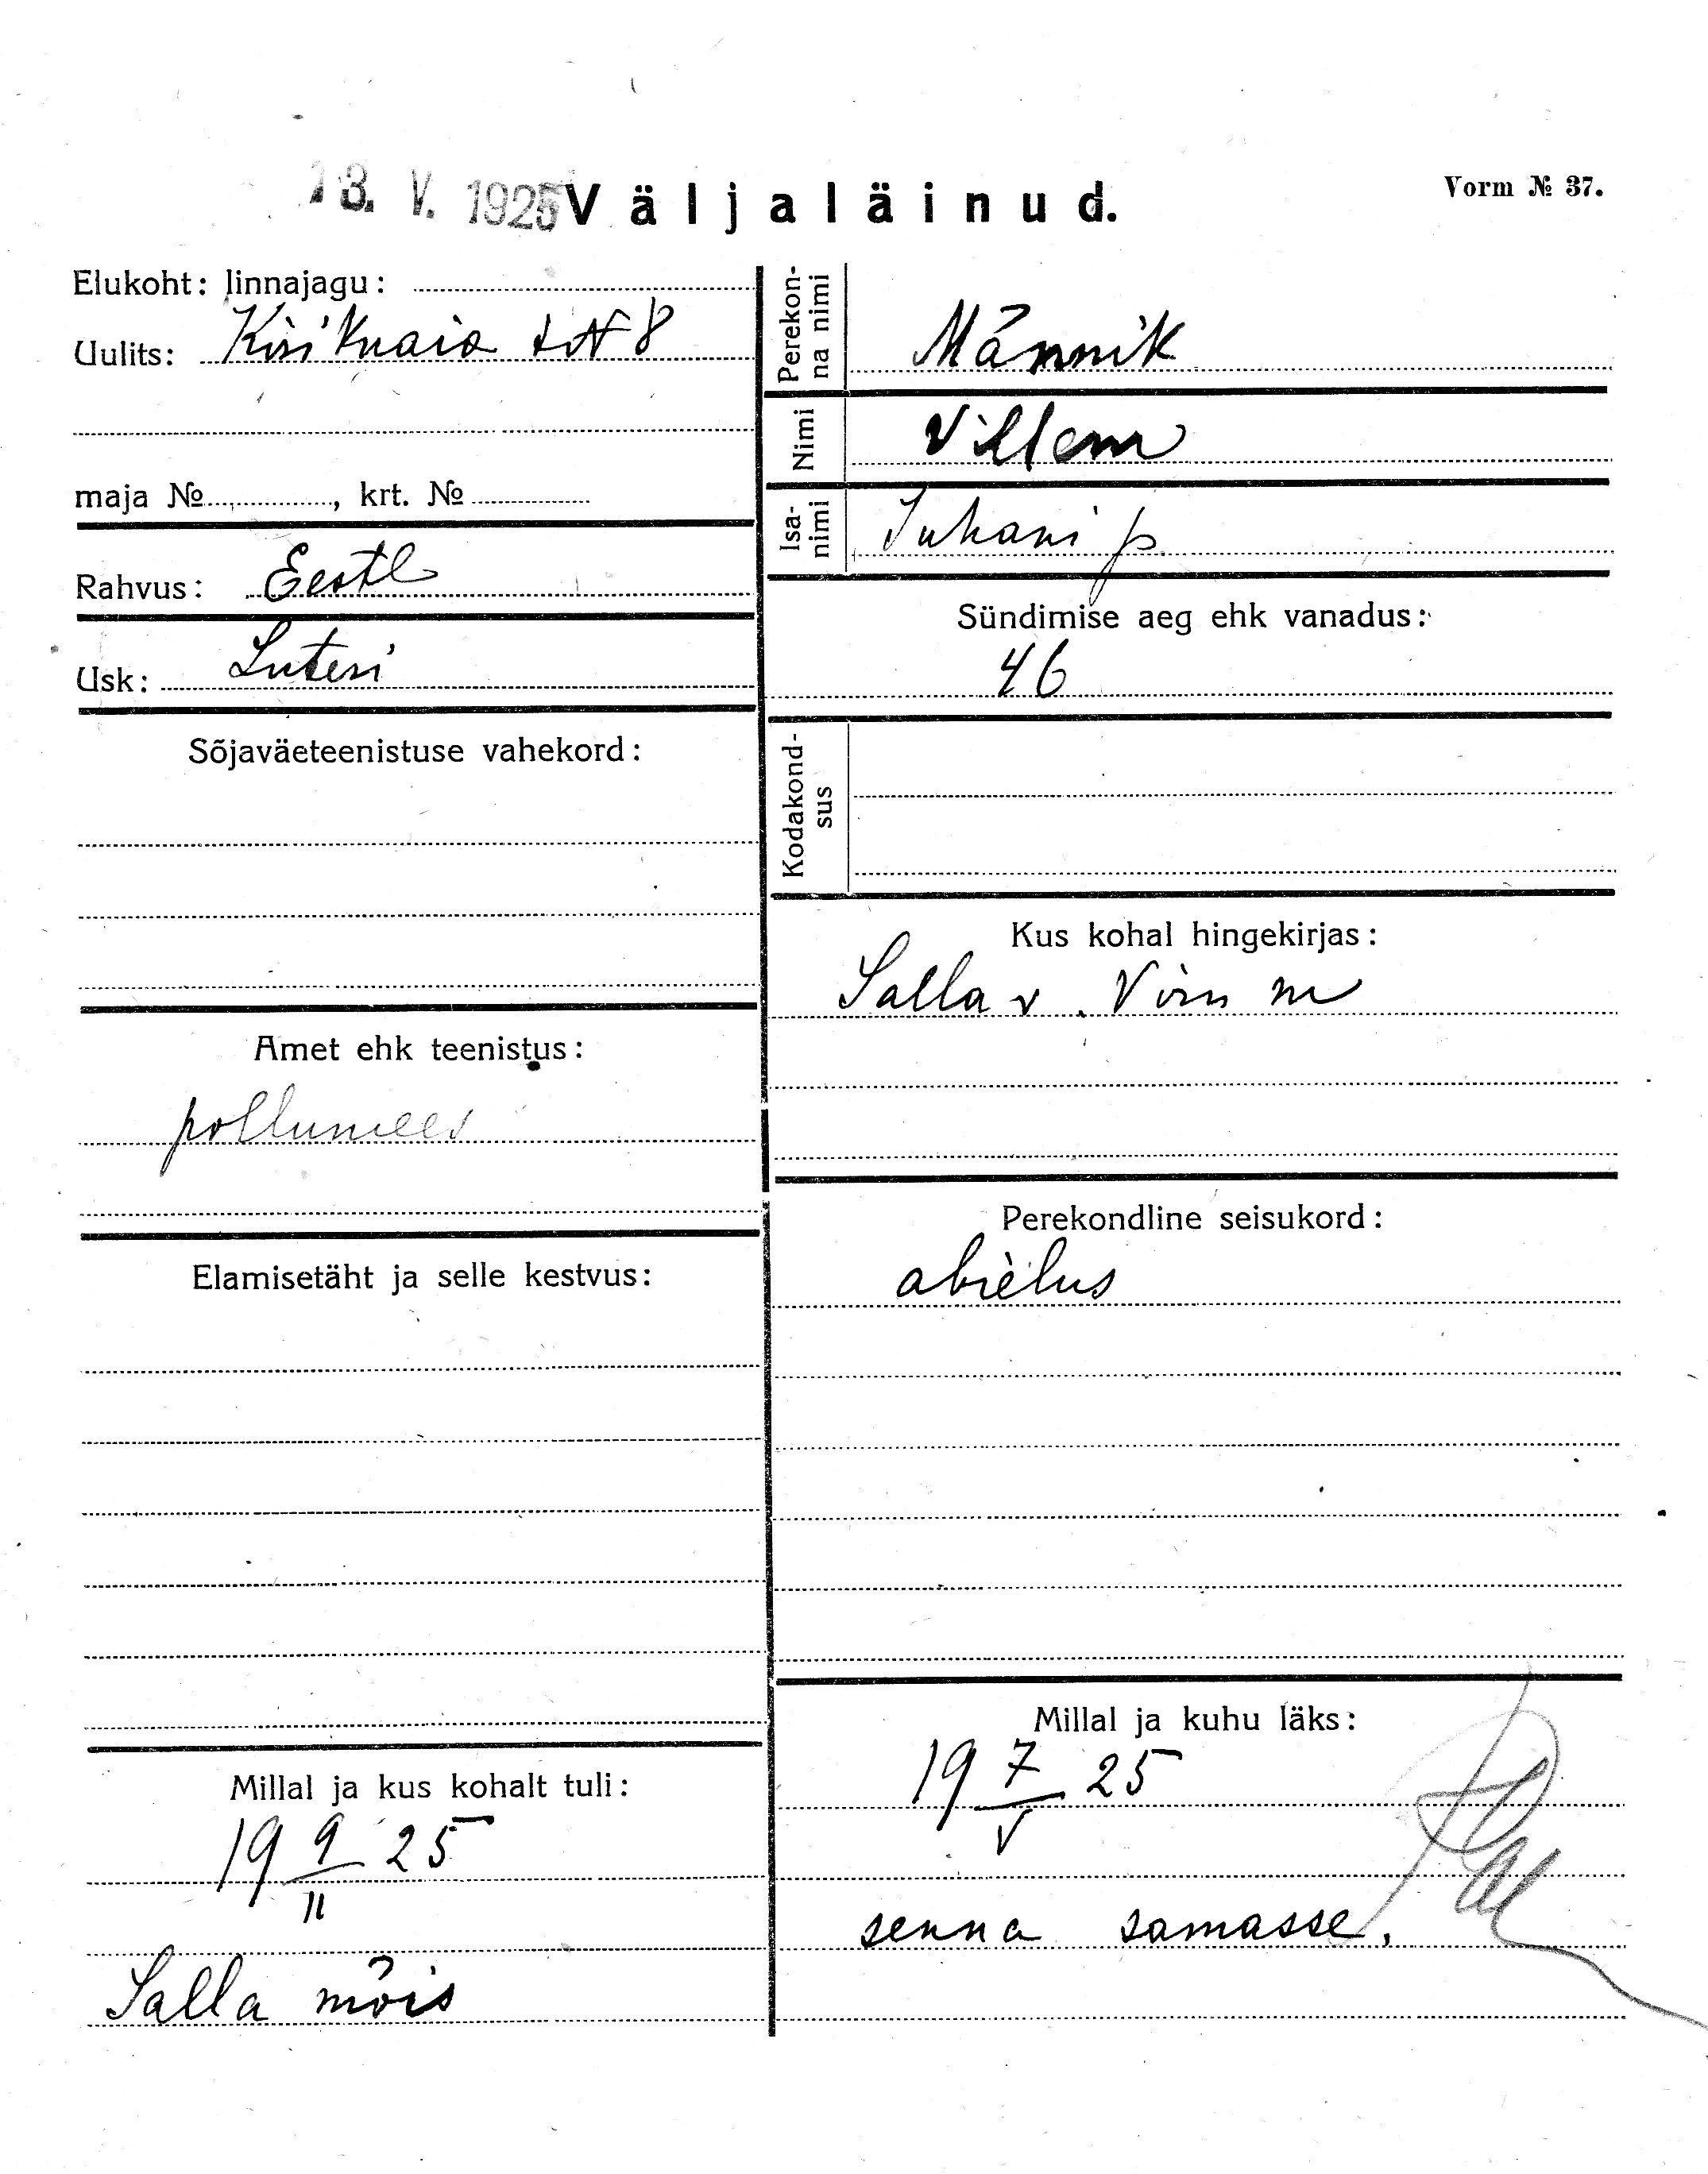 13. V. 1925 Väljaläinud.
Vorm № 37.
Elukoht: linnajagu:
Uulits: Kirikuaia t N 8
maja № , krt. №
Rahvus: Eestl
Usk: Luteri
Sõjaväeteenistuse vahekord:
Amet ehk teenistus:
pollumees
Elamisetäht ja selle kestvus:
Millal ja kus kohalt tuli:
19 9/II 25
Salla mõis
Perekon-
na nimi
Männik
Nimi
Villem
Isa-
nimi
Juhani p.
Sündimise aeg ehk vanadus:
46
Kodakond-
sus
Kus kohal hingekirjas:
Salla v. Viru m
Perekondline seisukord:
abielus
Millal ja kuhu läks:
19 7/V 25
senna samasse.